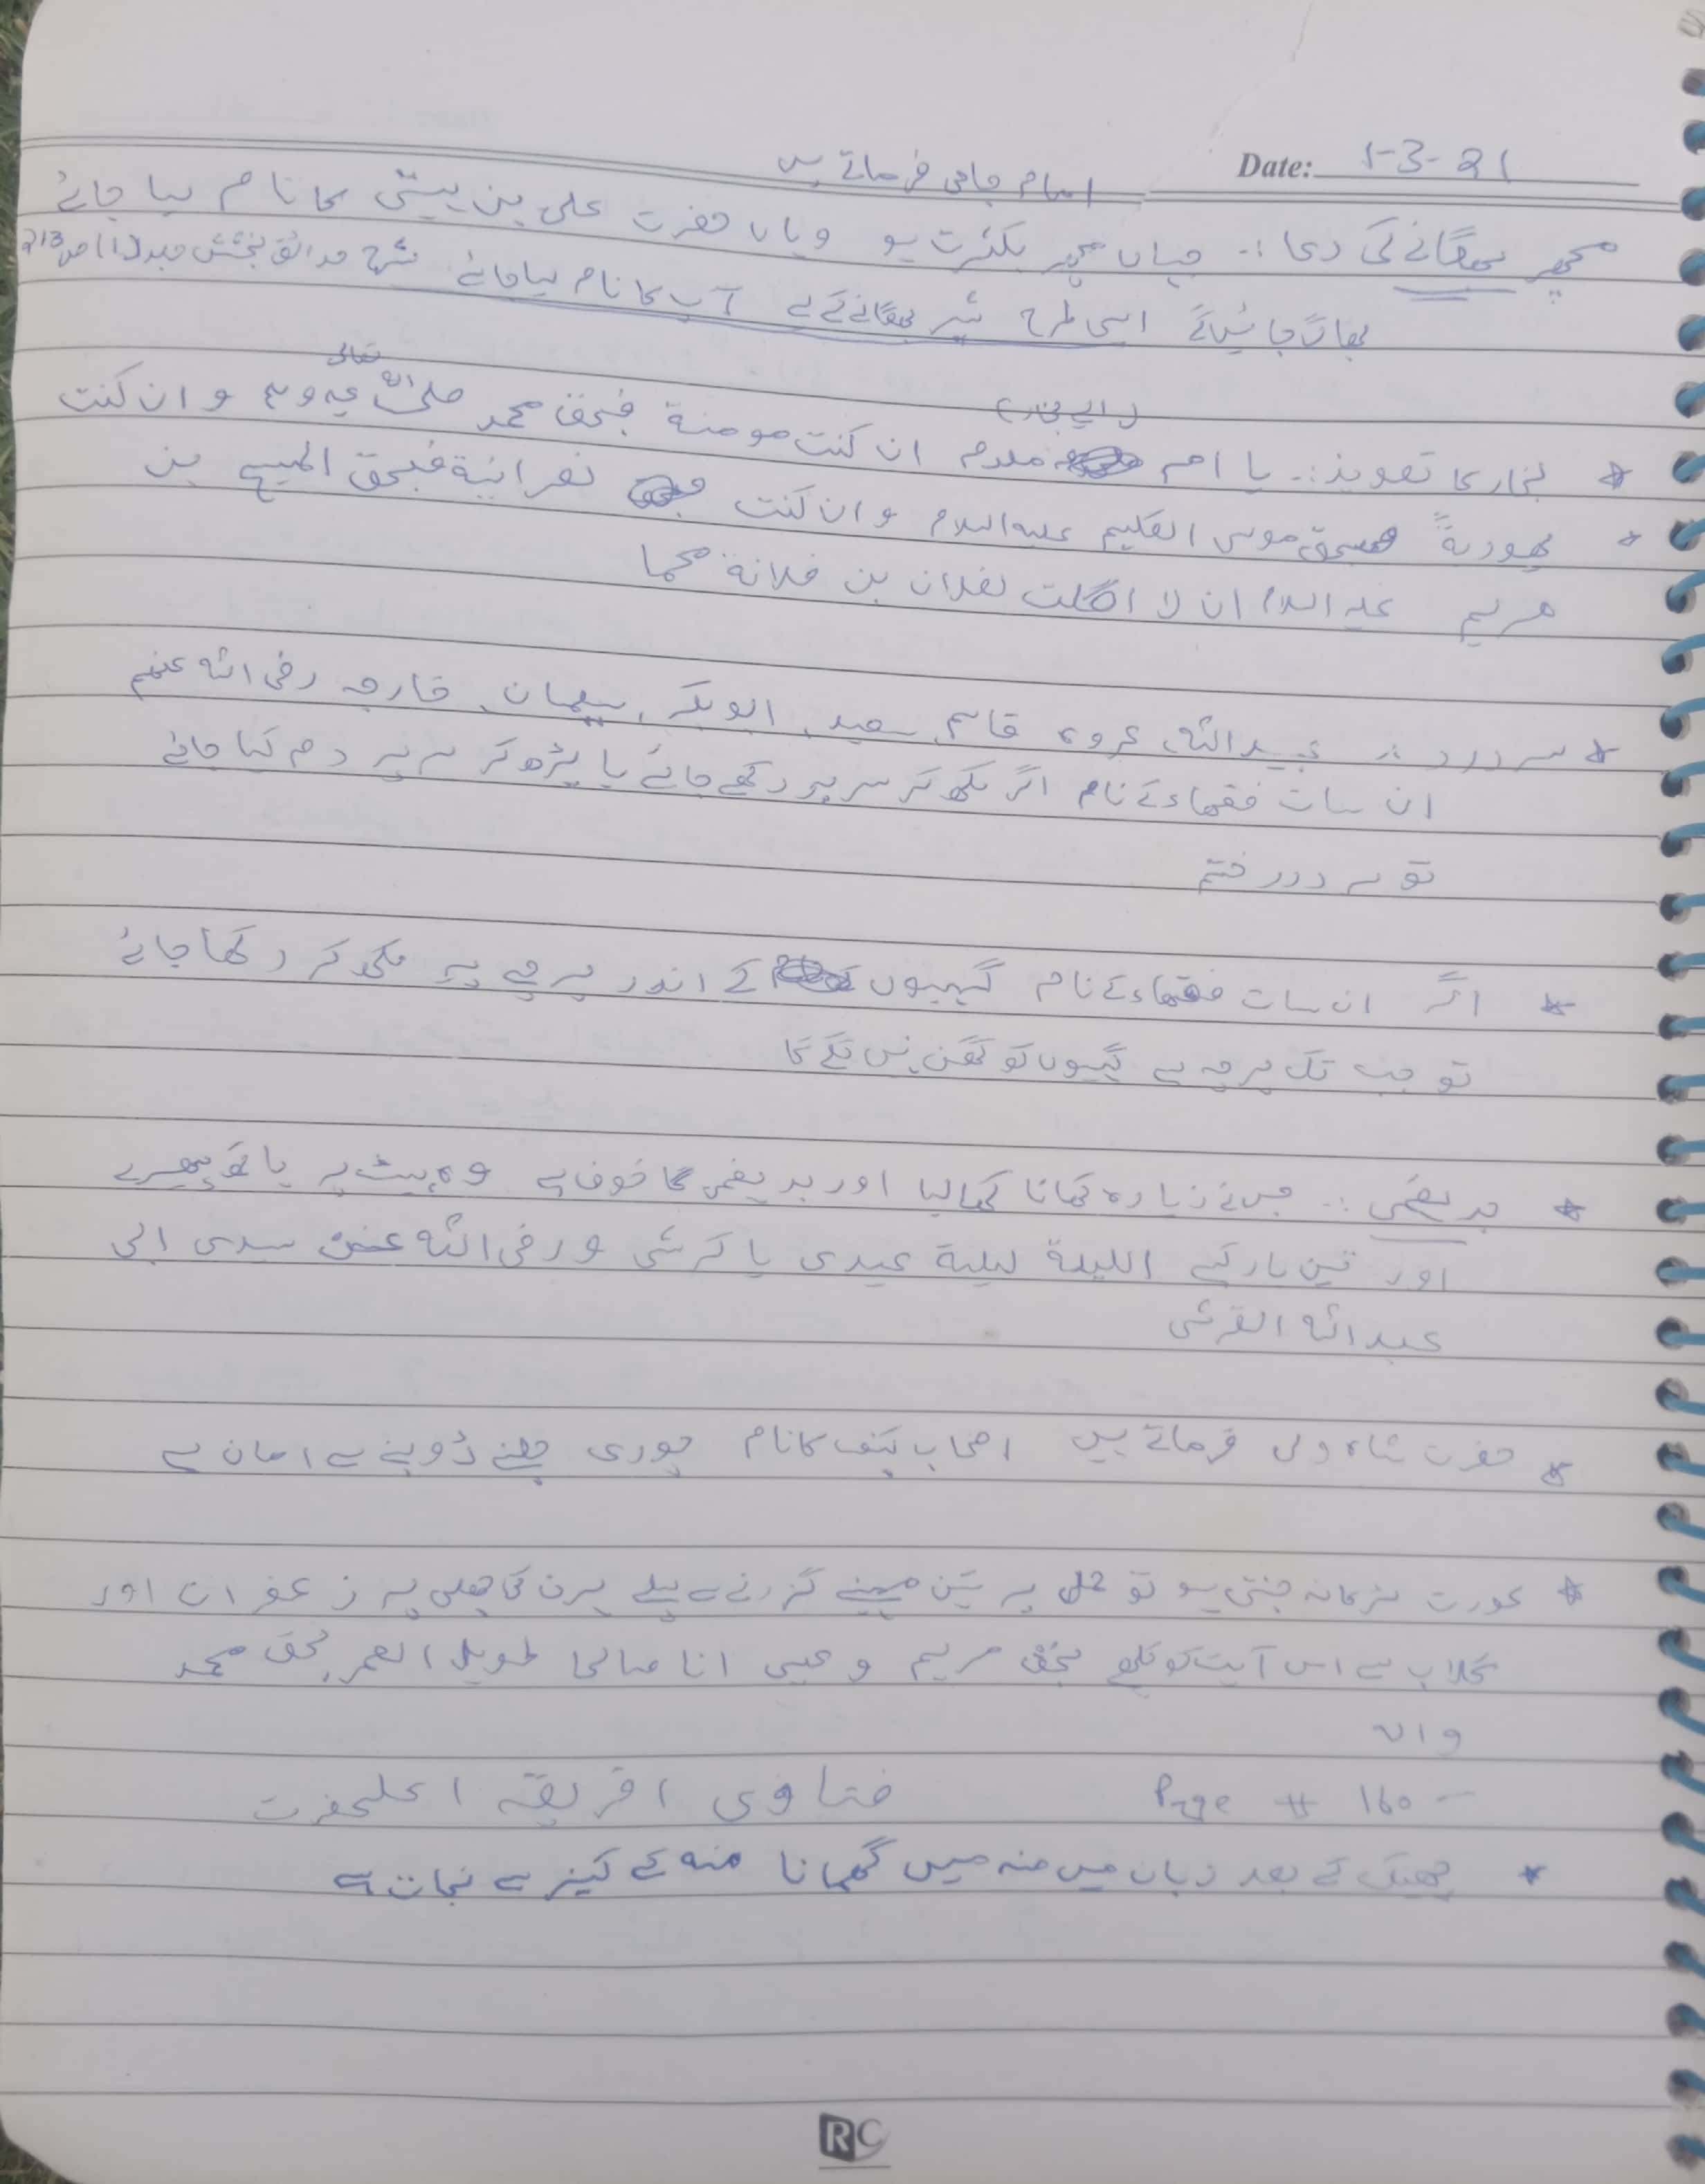 Date: 1-3-21
امام جامی فرماتے ہیں
مچھر بھگانے کی دعا :۔ جہاں مچھر بکثرت ہو وہاں حضرت علی بن ہیتی کا نام لیا جائے
بھاگ جائیں گے اسی طرح شیر بھگانے کے لئے آپ کا نام لیا جائے شرح حدائق بخشش جلد (1) ص 213
(اے بخار)
* بخار کا تعویذ :۔ یا ام ملدم ان کنت مومنة فبحق محمد صلی اللہ تعالی علیہ وسلم و ان کنت
* یھودیةً فبحق موسی الکلیم علیہ السلام و ان کنت نصرانیة فبحق المسیح بن
مریم علیہ السلام ان لا اکلت لفلان بن فلانة لحما
* سر درد :۔ عبیداللہ، عروہ قاسم، سعید، ابوبکر، سلیمان، خارجہ رضی اللہ عنھم
ان سات فقھاء کے نام اگر لکھ کر سر پر رکھے جائے یا پڑھ کر سر پر دم کیا جائے
تو سر درد ختم
* اگر ان سات فقھاء کے نام گیہوں کے اندر پرچے پر لکھ کر رکھا جائے
تو جب تک پرچہ ہے گیہوں کو گھن نہیں لگے گا
* بدہضمی :۔ جس نے زیادہ کھانا کھا لیا اور بدہضمی کا خوف ہے وہ پیٹ پر ہاتھ پھیرے
اور تین بار کہے اللیلة لیلة عیدی یا کرشی و رضی اللہ عن سیدی ابی
عبداللہ القرشی
* حضرت شاہ ولی فرماتے ہیں اصحاب کہف کا نام چوری جلنے ڈوبنے سے امان ہے
* عورت لڑکا نہ جنتی ہو تو حمل پر تین مہینے گزرنے سے پہلے ہرن کی جھلی پر زعفران اور
گلاب سے اس آیت کو لکھے بحق مریم و عیسی ابنا صالحا طویل العمر بحق محمد
والہ
Page # 160 - فتاوی افریقہ اعلیحضرت
* چھینک کے بعد زبان میں منہ میں گھمانا منہ کے کینسر سے نجات ہے
RC